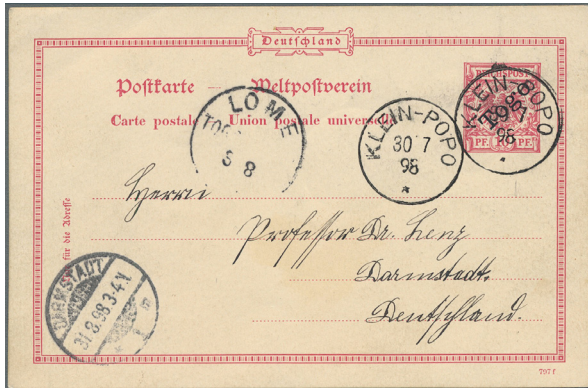 Deutschland
REICHSPOST
Postkarte — Weltpostverein
Carte postale — Union postale universelle
PF. PF.
LOME
TOGO
8 8
KLEIN-POPO
30 7
98
*
KLEIN-POPO
7
98
*
Herrn
Professor Dr. Lenz
Darmstadt.
Deutschland.
für die Adresse
DARMSTADT
31.8.98.3-4 N
1
797 f